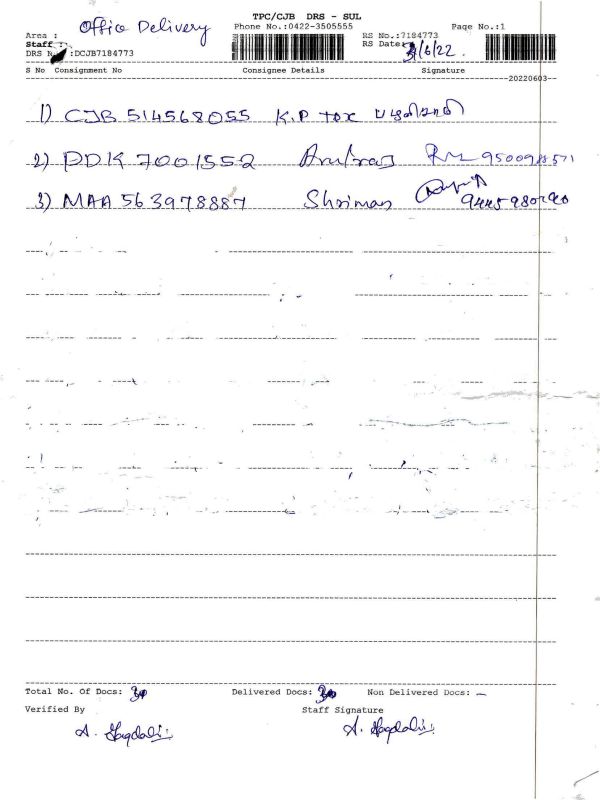 TPC/CJB DRS - SUL
Office Delivery
Phone No.:0422-3505555
Page No.:1
Area :
RS No.:7184773
Staff
RS Date: 3/6/22.
DRS No :DCJB7184773
S No Consignment No Consignee Details Signature
20220603
1) CJB 514568055 K.P tex பழனிசாமி
2) PDK 7001552 Arulraj
3) MAA 563978887 Shriman
Total No. Of Docs: Delivered Docs: Non Delivered Docs: -
Verified By Staff Signature